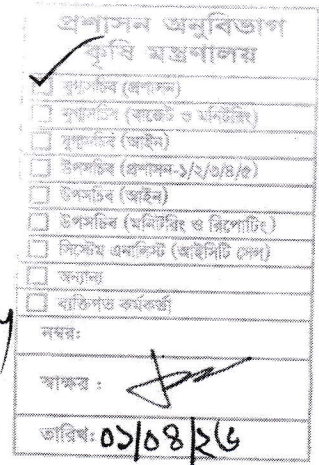 প্রশাসন অনুবিভাগ
কৃষি মন্ত্রণালয়
যুগ্মসচিব (প্রশাসন)
যুগ্মসচিব (বাজেট ও মনিটরিং)
যুগ্মসচিব (আইন)
উপসচিব (প্রশাসন-১/২/৩/৪/৫)
উপসচিব (আইন)
উপসচিব (মনিটরিং ও রিপোর্টিং)
সিস্টেম এনালিস্ট (আইসিটি সেল)
অন্যান্য
ব্যক্তিগত কর্মকর্তা
নম্বর:
স্বাক্ষর :
তারিখ: ০১/০৪/২৬